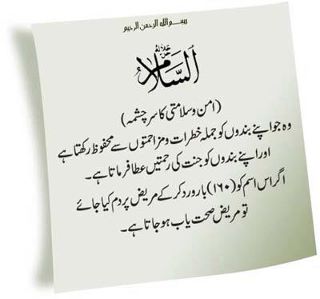 بسم الله الرحمن الرحيم
السَّلَامُ جل جلاله
(امن و سلامتی کا سرچشمہ)
وہ جو اپنے بندوں کو جملہ خطرات و مزاحمتوں سے محفوظ رکھتا ہے
اور اپنے بندوں کو جنت کی رحمتیں عطا فرماتا ہے۔
اگر اس اسم کو (۱۶۰) بار ورد کرکے مریض پر دم کیا جائے
تو مریض صحت یاب ہو جاتا ہے۔